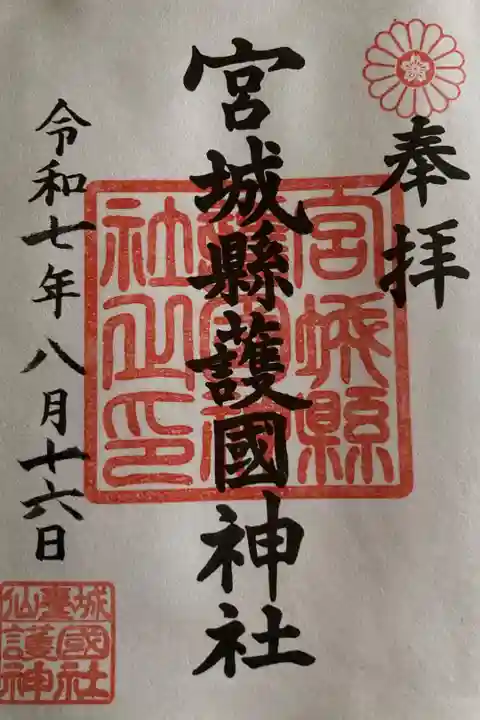 奉拝
宮城縣護國神社
宮城縣
護國神
社之印
令和七年八月十六日
仙臺城
護國神社